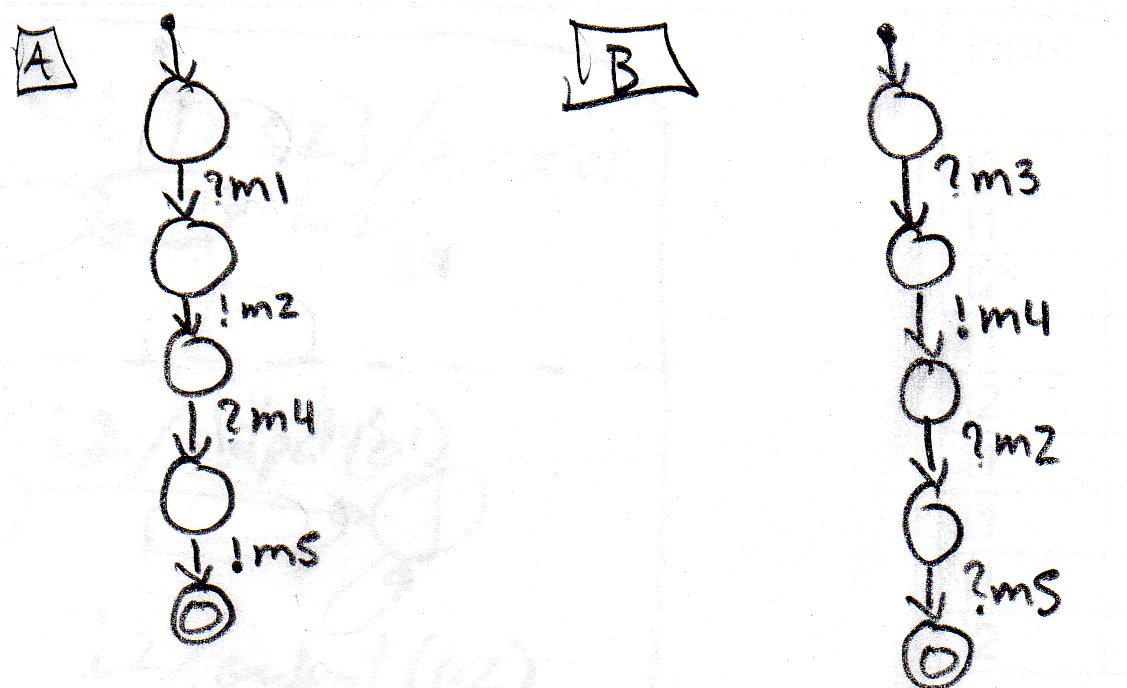 A
?m1
!m2
?m4
!m5
B
?m3
!m4
?m2
?m5